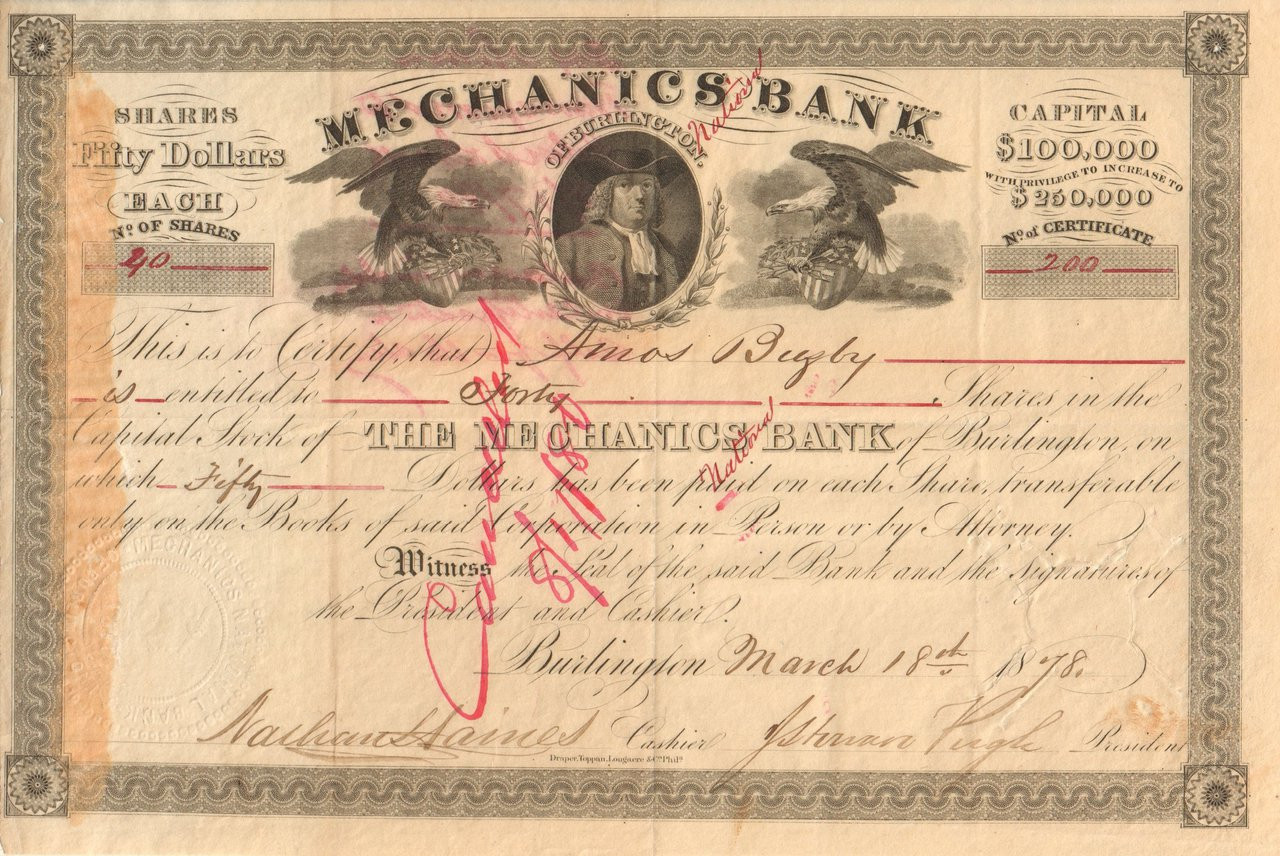 MECHANICS National BANK
OF BURLINGTON.
SHARES
Fifty Dollars
EACH
No. OF SHARES
40
CAPITAL
$100,000
WITH PRIVILEGE TO INCREASE TO
$250,000
No. of CERTIFICATE
200
This is to Certify that Amos Bugby
is entitled to Forty Shares in the
Capital Stock of THE MECHANICS National BANK of Burlington, on
which Fifty Dollars has been paid on each Share, transferable
only on the Books of said Corporation in Person or by Attorney.
Witness the Seal of the said Bank and the signatures of
the President and Cashier.
Burlington March 18th 1878.
Nathan Haines Cashier Pugh President
Draper, Toppan, Longacre & Co. Phila.
Cancelled
8/1/1880
MECHANICS
BANK